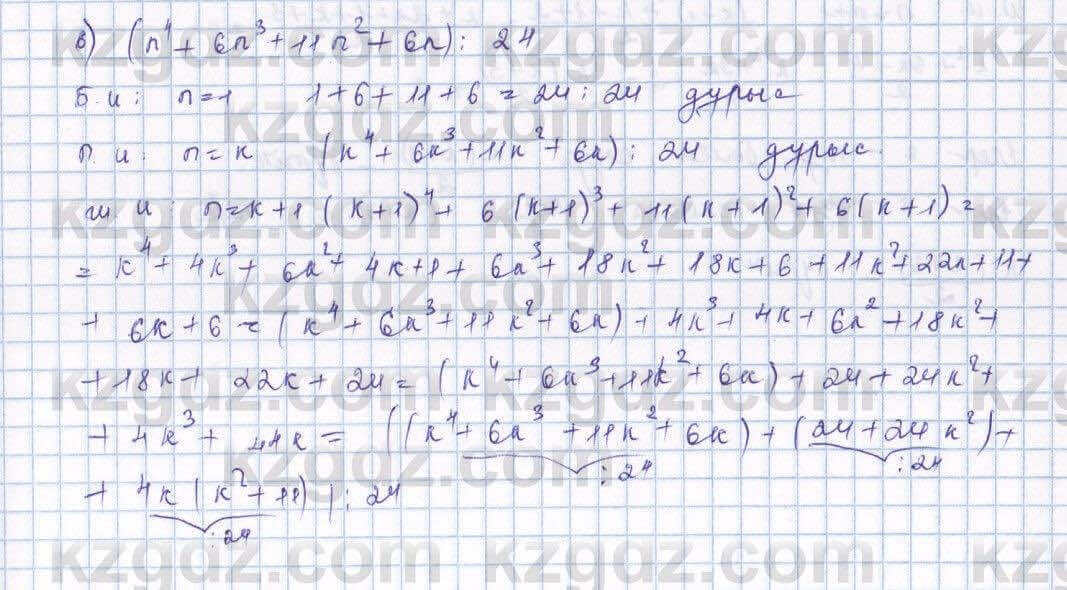 в) (n⁴ + 6n³ + 11n² + 6n) ⋮ 24
Б.и: n=1 1+6+11+6 = 24 ⋮ 24 дұрыс
П.и: n=k (k⁴ + 6k³ + 11k² + 6k) ⋮ 24 дұрыс.
ш.и: n=k+1 (k+1)⁴ + 6(k+1)³ + 11(k+1)² + 6(k+1) =
= k⁴ + 4k³ + 6k² + 4k + 1 + 6k³ + 18k² + 18k + 6 + 11k² + 22k + 11 +
+ 6k + 6 = (k⁴ + 6k³ + 11k² + 6k) + 4k³ + 4k + 6k² + 18k² +
+ 18k + 22k + 24 = (k⁴ + 6k³ + 11k² + 6k) + 24 + 24k² +
+ 4k³ + 44k = ((k⁴ + 6k³ + 11k² + 6k) + (24 + 24k²) +
⋮ 24 ⋮ 24
+ 4k(k² + 11)) ⋮ 24
⋮ 24
kzgdz.com